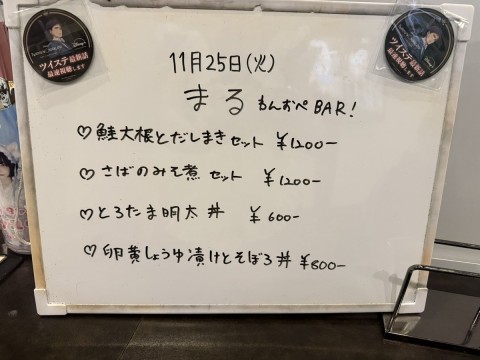 ツイステ最新話
最速視聴します
ツイステ最新話
最速視聴します
11月25日(火)
まる もんおぺBAR!
♡鮭大根とだしまきセット ¥1200-
♡さばのみそ煮 セット ¥1200-
♡とろたま明太丼 ¥600-
♡卵黄しょうゆ漬けとそぼろ丼 ¥800-